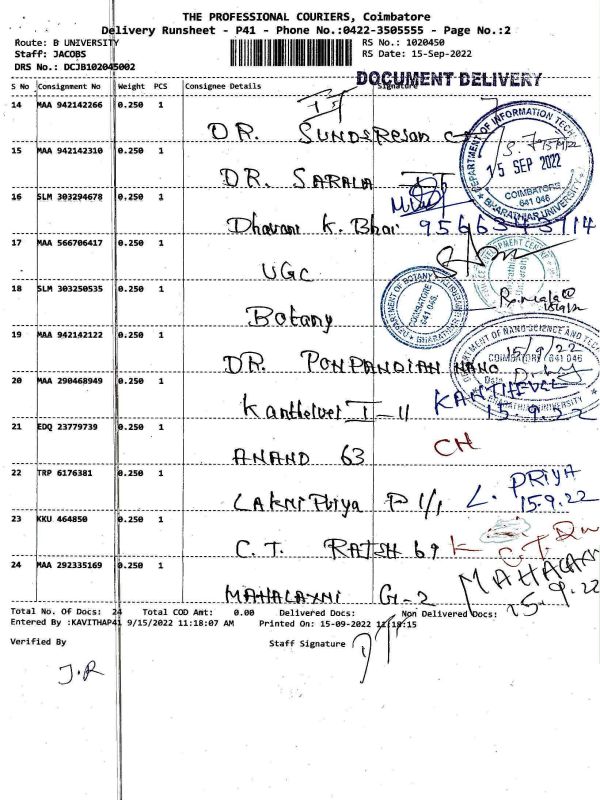 THE PROFESSIONAL COURIERS, Coimbatore
Delivery Runsheet - P41 - Phone No.:0422-3505555 - Page No.:2
Route: B UNIVERSITY
Staff: JACOBS
DRS No.: DCJB102045002
RS No.: 1020450
RS Date: 15-Sep-2022
DOCUMENT DELIVERY
S No Consignment No Weight PCS Consignee Details Signature
14 MAA 942142266 0.250 1
DR. SUNDERESAN
15 MAA 942142310 0.250 1
DR. SARALA
DEPARTMENT OF INFORMATION TECH
15 SEP 2022
COIMBATORE
641 046
BHARATHIAR UNIVERSITY
16 SLM 303294678 0.250 1
Dhavani K. Bhai 9566343714
17 MAA 566706417 0.250 1
UGC
18 SLM 303250535 0.250 1
Botany
DEPARTMENT OF BOTANY
COIMBATORE
641 046
19 MAA 942142122 0.250 1
DR. PONPANDIAN NANO
DEPARTMENT OF NANO SCIENCE AND TECH
15/9/22
COIMBATORE 641 046
Date
BHARATHIAR UNIVERSITY
20 MAA 290468949 0.250 1
Kanthelvel I-11 KANTHEVEL
15.9.22
21 EDQ 23779739 0.250 1
ANAND 63
CH
22 TRP 6176381 0.250 1
LAKMI Priya P 1/1 L. PRIYA
15.9.22
23 KKU 464850 0.250 1
C.T. RAJSH 69
24 MAA 292335169 0.250 1
MAHALAXMI G-2
15.9.22
Total No. Of Docs: 24 Total COD Amt: 0.00 Delivered Docs: Non Delivered Docs:
Entered By :KAVITHAP41 9/15/2022 11:18:07 AM Printed On: 15-09-2022 11:18:15
Verified By Staff Signature
J.R